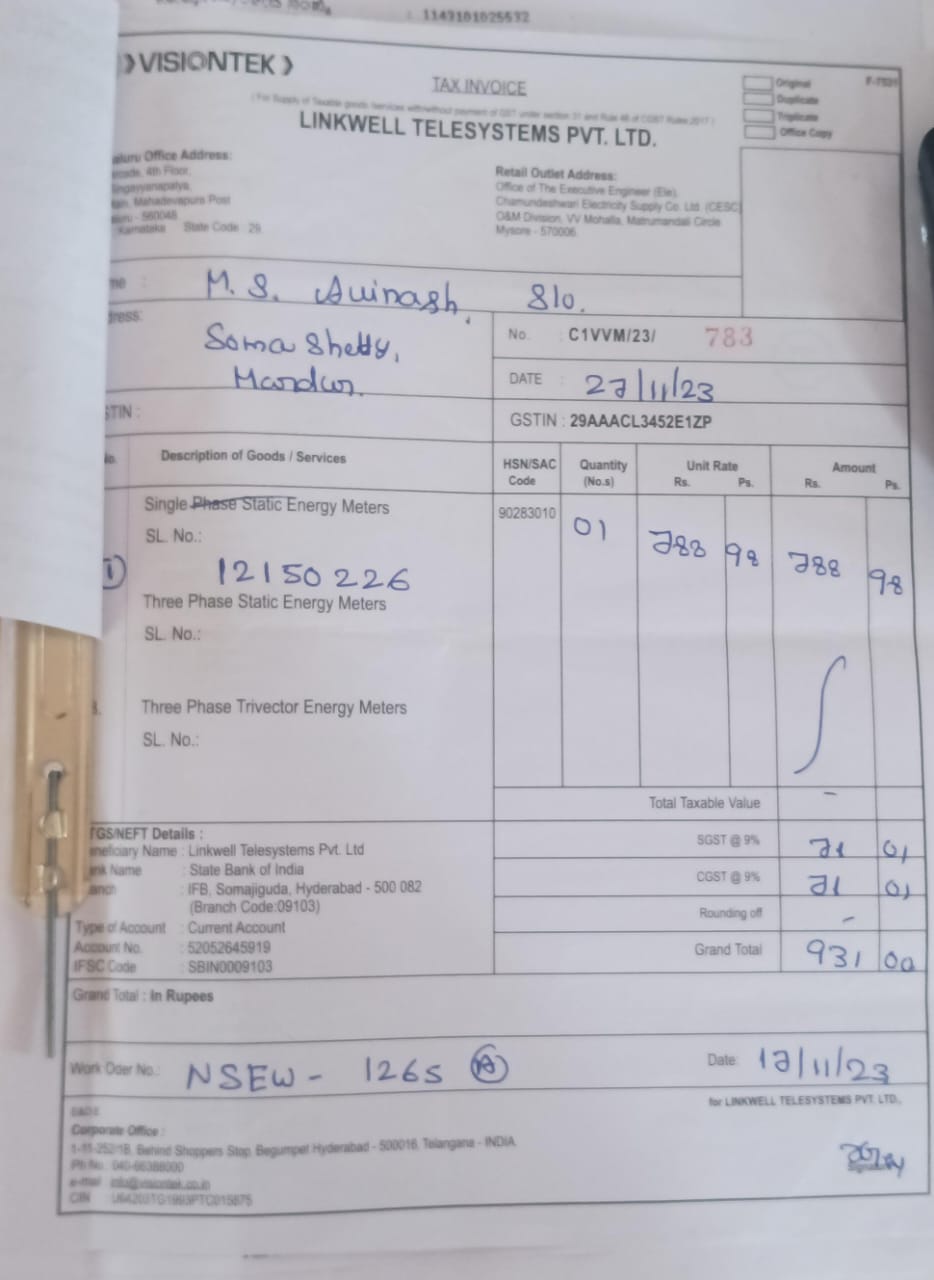 1143101025532
❯VISIONTEK❯
TAX INVOICE
Original
F-7531
Duplicate
Triplicate
Office Copy
( For Supply of Taxable goods /services with/without payment of GST under section 31 and Rule 46 of CGST Rules 2017 )
LINKWELL TELESYSTEMS PVT. LTD.
Office Address:
4th Floor,
Mahadevapura Post
- 560048
Karnataka State Code 29
Retail Outlet Address:
Office of The Executive Engineer (Ele).
Chamundeshwari Electricity Supply Co. Ltd. (CESC)
O&M Division, VV Mohalla, Matrumandali Circle
Mysore - 570006
: M. S. Avinash, S/o.
Soma Shetty,
No. : C1VVM/23/ 783
DATE : 27/11/23
GSTIN : 29AAACL3452E1ZP
Description of Goods / Services
HSN/SAC Code
Quantity (No.s)
Unit Rate
Rs. Ps.
Amount
Rs. Ps.
Single Phase Static Energy Meters
90283010 01 788 98 788 98
SL. No.:
1) 12150226
Three Phase Static Energy Meters
SL. No.:
Three Phase Trivector Energy Meters
SL. No.:
Total Taxable Value -
SGST @ 9% 71 01
CGST @ 9% 71 01
Rounding off -
Grand Total 931 00
TGS/NEFT Details :
neficiary Name : Linkwell Telesystems Pvt. Ltd
nk Name : State Bank of India
anch : IFB, Somajiguda, Hyderabad - 500 082
(Branch Code:09103)
Type of Account : Current Account
Account No. : 52052645919
IFSC Code : SBIN0009103
Grand Total : In Rupees
Work Oder No.: NSEW - 1265 A
Date: 17/11/23
for LINKWELL TELESYSTEMS PVT. LTD.,
Corporate Office :
1-11-252/1B, Behind Shoppers Stop, Begumpet Hyderabad - 500016, Telangana - INDIA
Ph No.: 040-66388000
e-mail info@visiontek.co.in
CIN : U64203TG1993PTC015875